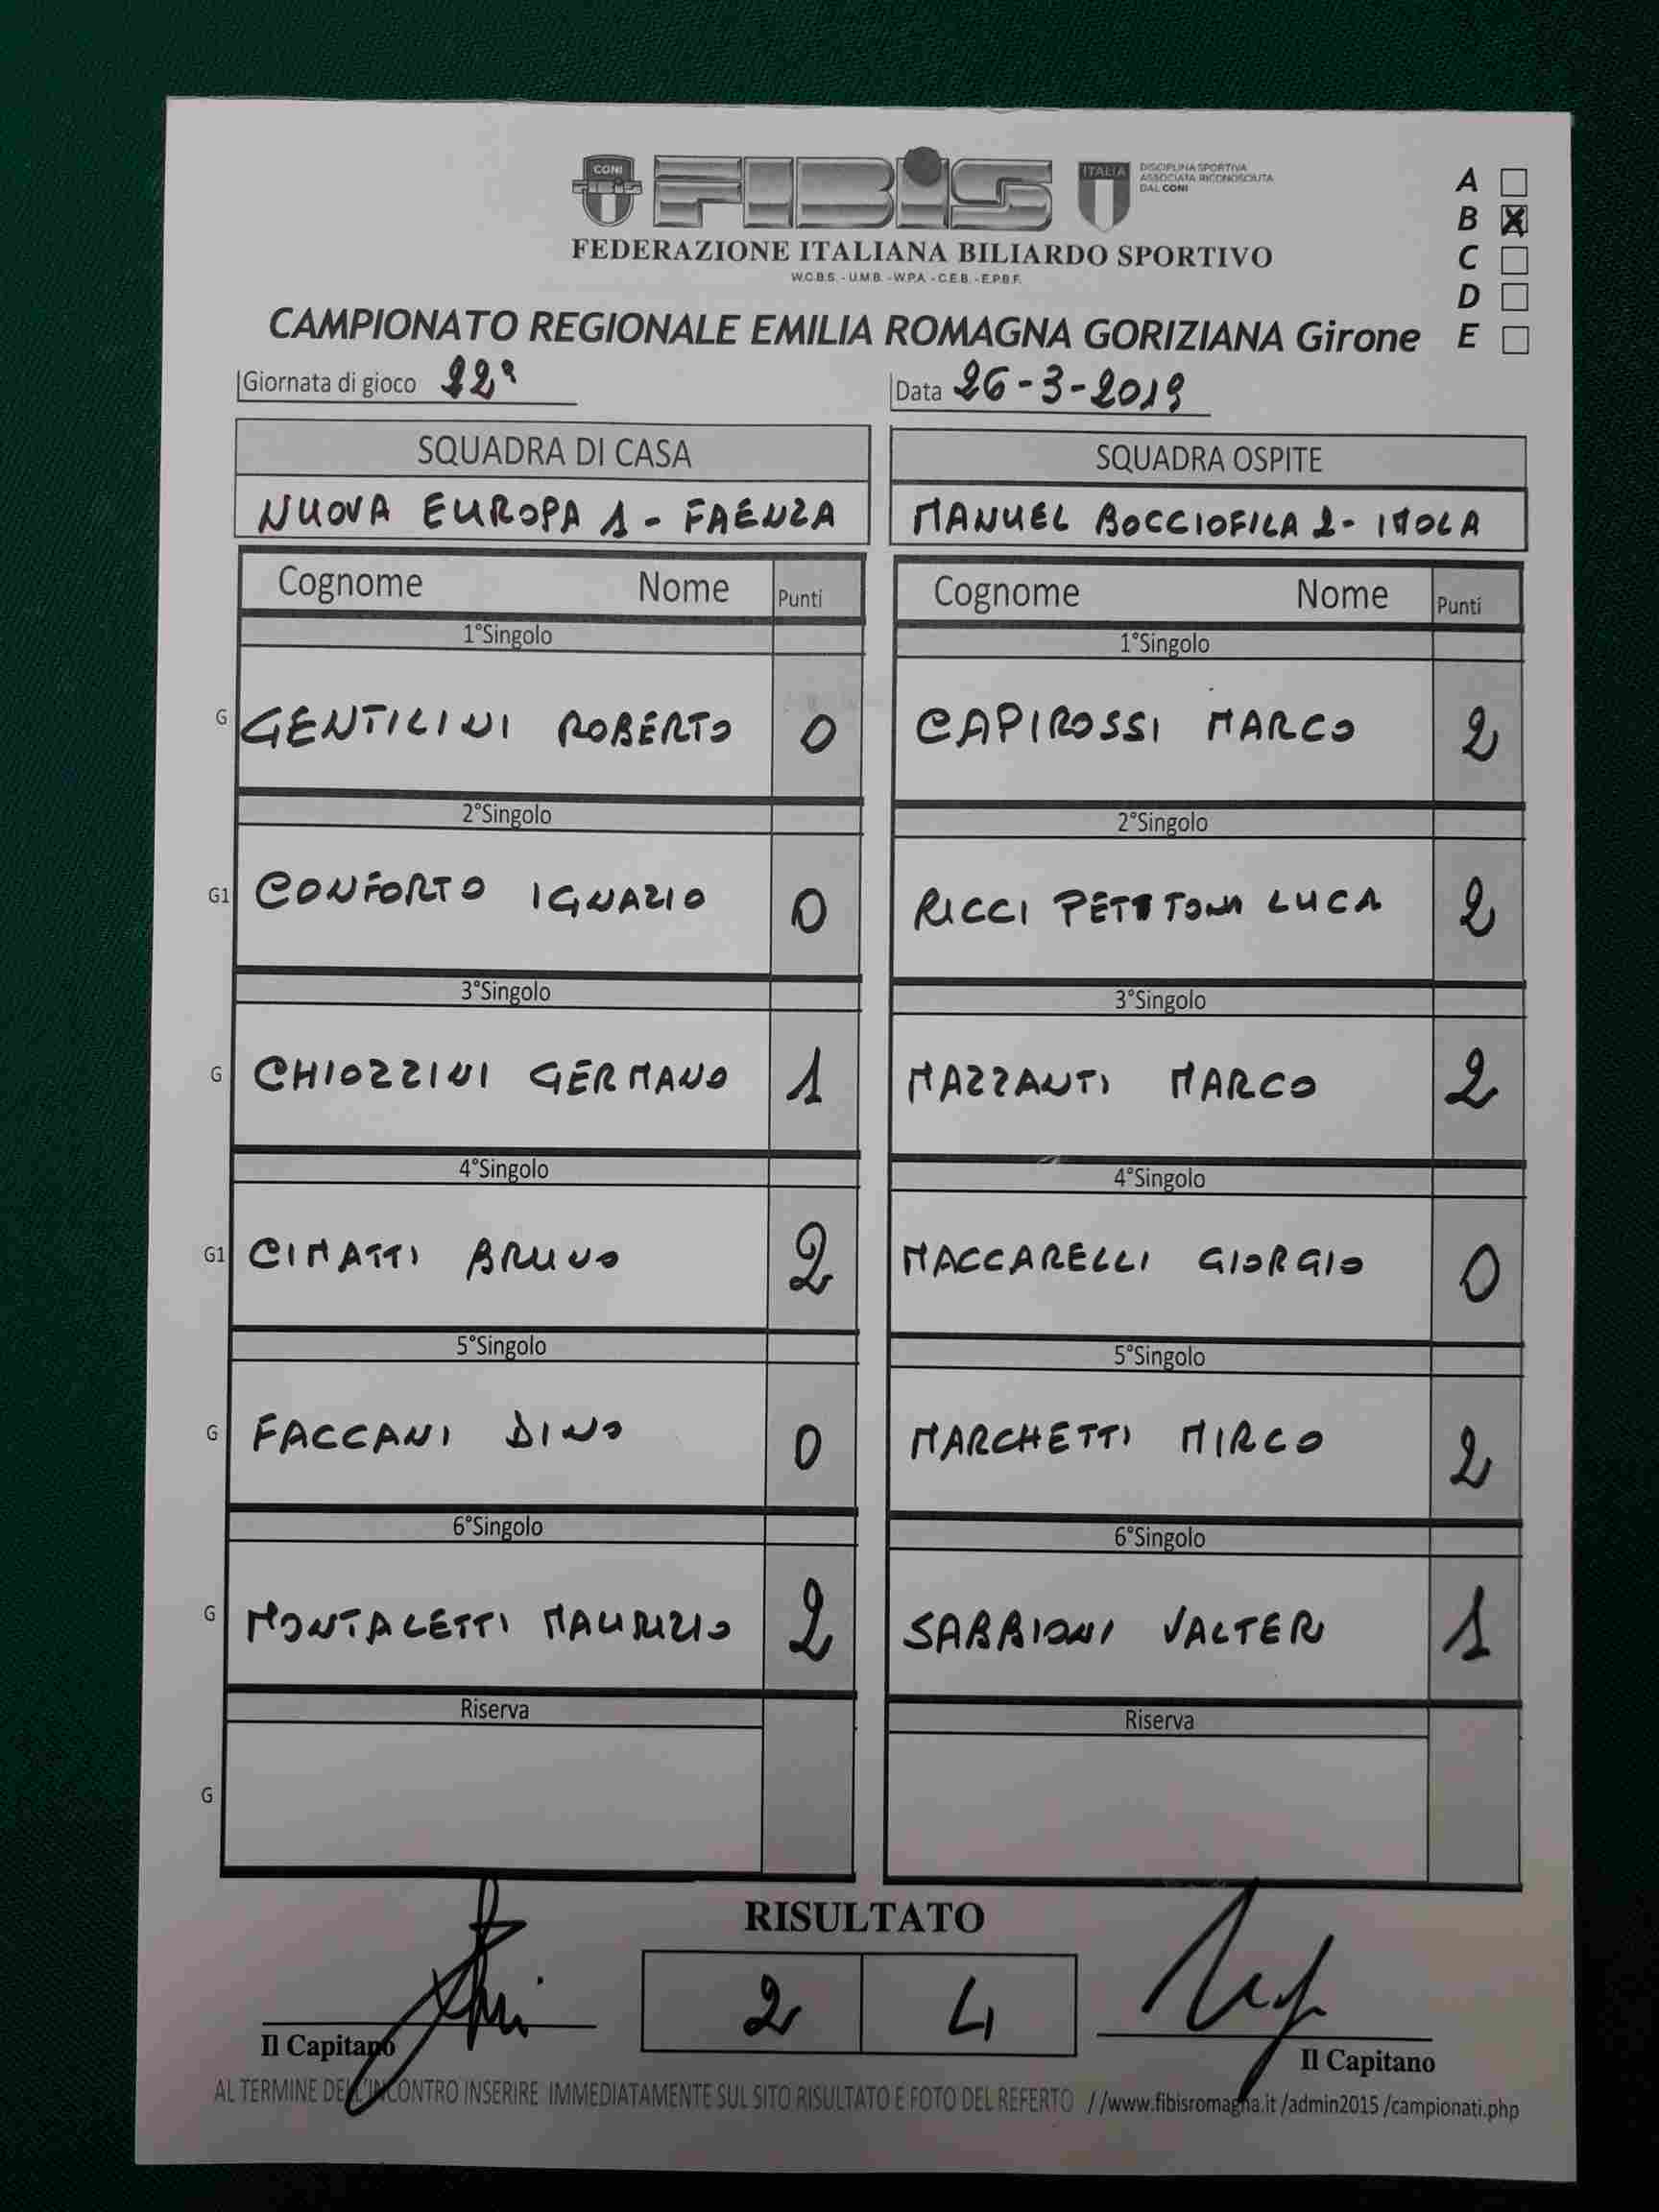 CONI
FIBiS
ITALIA
DISCIPLINA SPORTIVA
ASSOCIATA RICONOSCIUTA
DAL CONI
FEDERAZIONE ITALIANA BILIARDO SPORTIVO
W.C.B.S. - U.M.B. - W.P.A. - C.E.B. - E.P.B.F.
A
B X
C
D
E
CAMPIONATO REGIONALE EMILIA ROMAGNA GORIZIANA Girone
Giornata di gioco 22ª
Data 26-3-2019
SQUADRA DI CASA
NUOVA EUROPA 1 - FAENZA
SQUADRA OSPITE
MANUEL BOCCIOFILA 2 - IMOLA
Cognome Nome Punti
Cognome Nome Punti
1°Singolo
1°Singolo
G GENTILINI ROBERTO 0
CAPIROSSI MARCO 2
2°Singolo
2°Singolo
G1 CONFORTO IGNAZIO 0
RICCI LUCA 2
3°Singolo
3°Singolo
G CHIOZZINI GERMANO 1
MAZZANTI MARCO 2
4°Singolo
4°Singolo
G1 CIMATTI BRUNO 2
MACCARELLI GIORGIO 0
5°Singolo
5°Singolo
G FACCANI DINO 0
MARCHETTI MIRCO 2
6°Singolo
6°Singolo
G MONTALETTI MAURIZIO 2
SABBIONI VALTER 1
Riserva
Riserva
G
RISULTATO
2 4
Il Capitano
Il Capitano
AL TERMINE DELL'INCONTRO INSERIRE IMMEDIATAMENTE SUL SITO RISULTATO E FOTO DEL REFERTO //www.fibisromagna.it /admin2015 /campionati.php